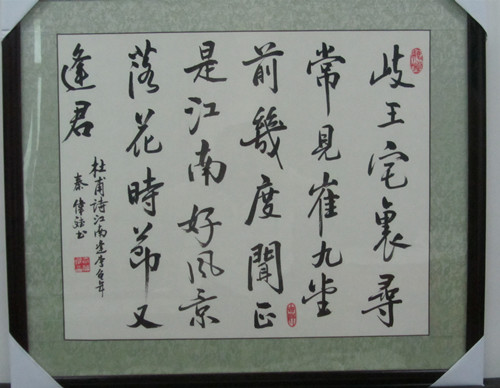 歧王宅裏尋
常見崔九堂
前幾度聞正
是江南好风景
落花時節又
逢君
杜甫詩江南逢李龜年
秦偉